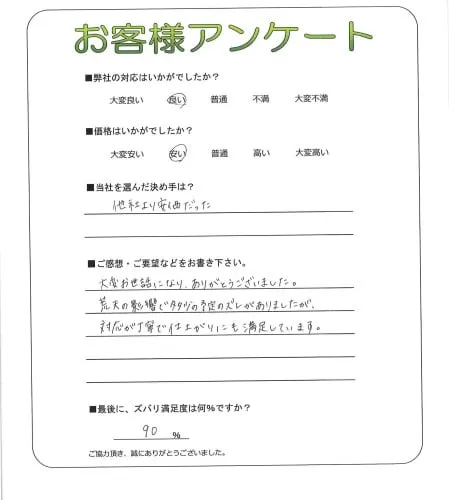 お客様アンケート
■弊社の対応はいかがでしたか?
大変良い 良い 普通 不満 大変不満
■価格はいかがでしたか?
大変安い 安い 普通 高い 大変高い
■当社を選んだ決め手は?
他社より安価だった
■ご感想・ご要望などをお書き下さい。
大変お世話になり、ありがとうございました。
荒天の影響で の予定のズレがありましたが、
対応が丁寧で仕上がりにも満足しています。
■最後に、ズバリ満足度は何%ですか?
90 %
ご協力頂き、誠にありがとうございました。